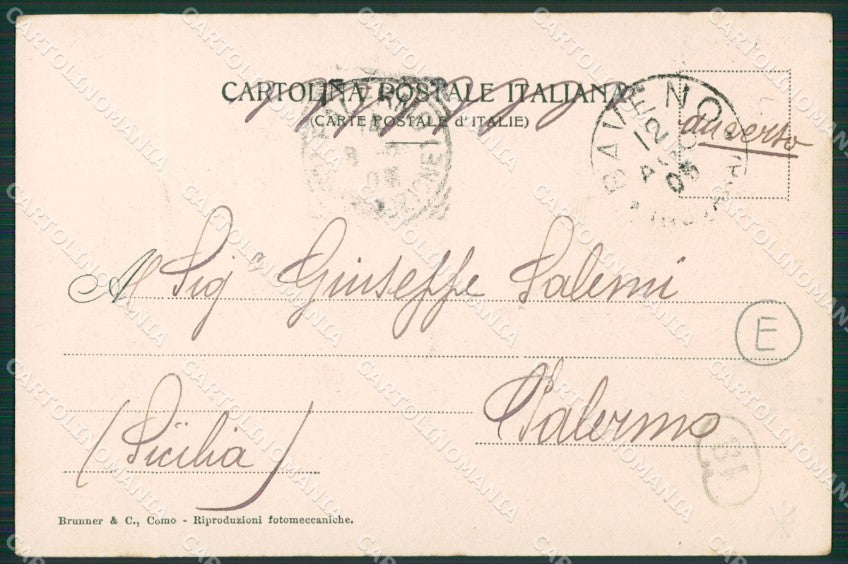 CARTOLINA POSTALE ITALIANA
(CARTE POSTALE d'ITALIE)
BAVENO
12
05
au verso
Al Sig.ª Giuseppe Salemi
E
Palermo
(Sicilia)
131
Brunner & C., Como - Riproduzioni fotomeccaniche.
CARTOLINOMANIA